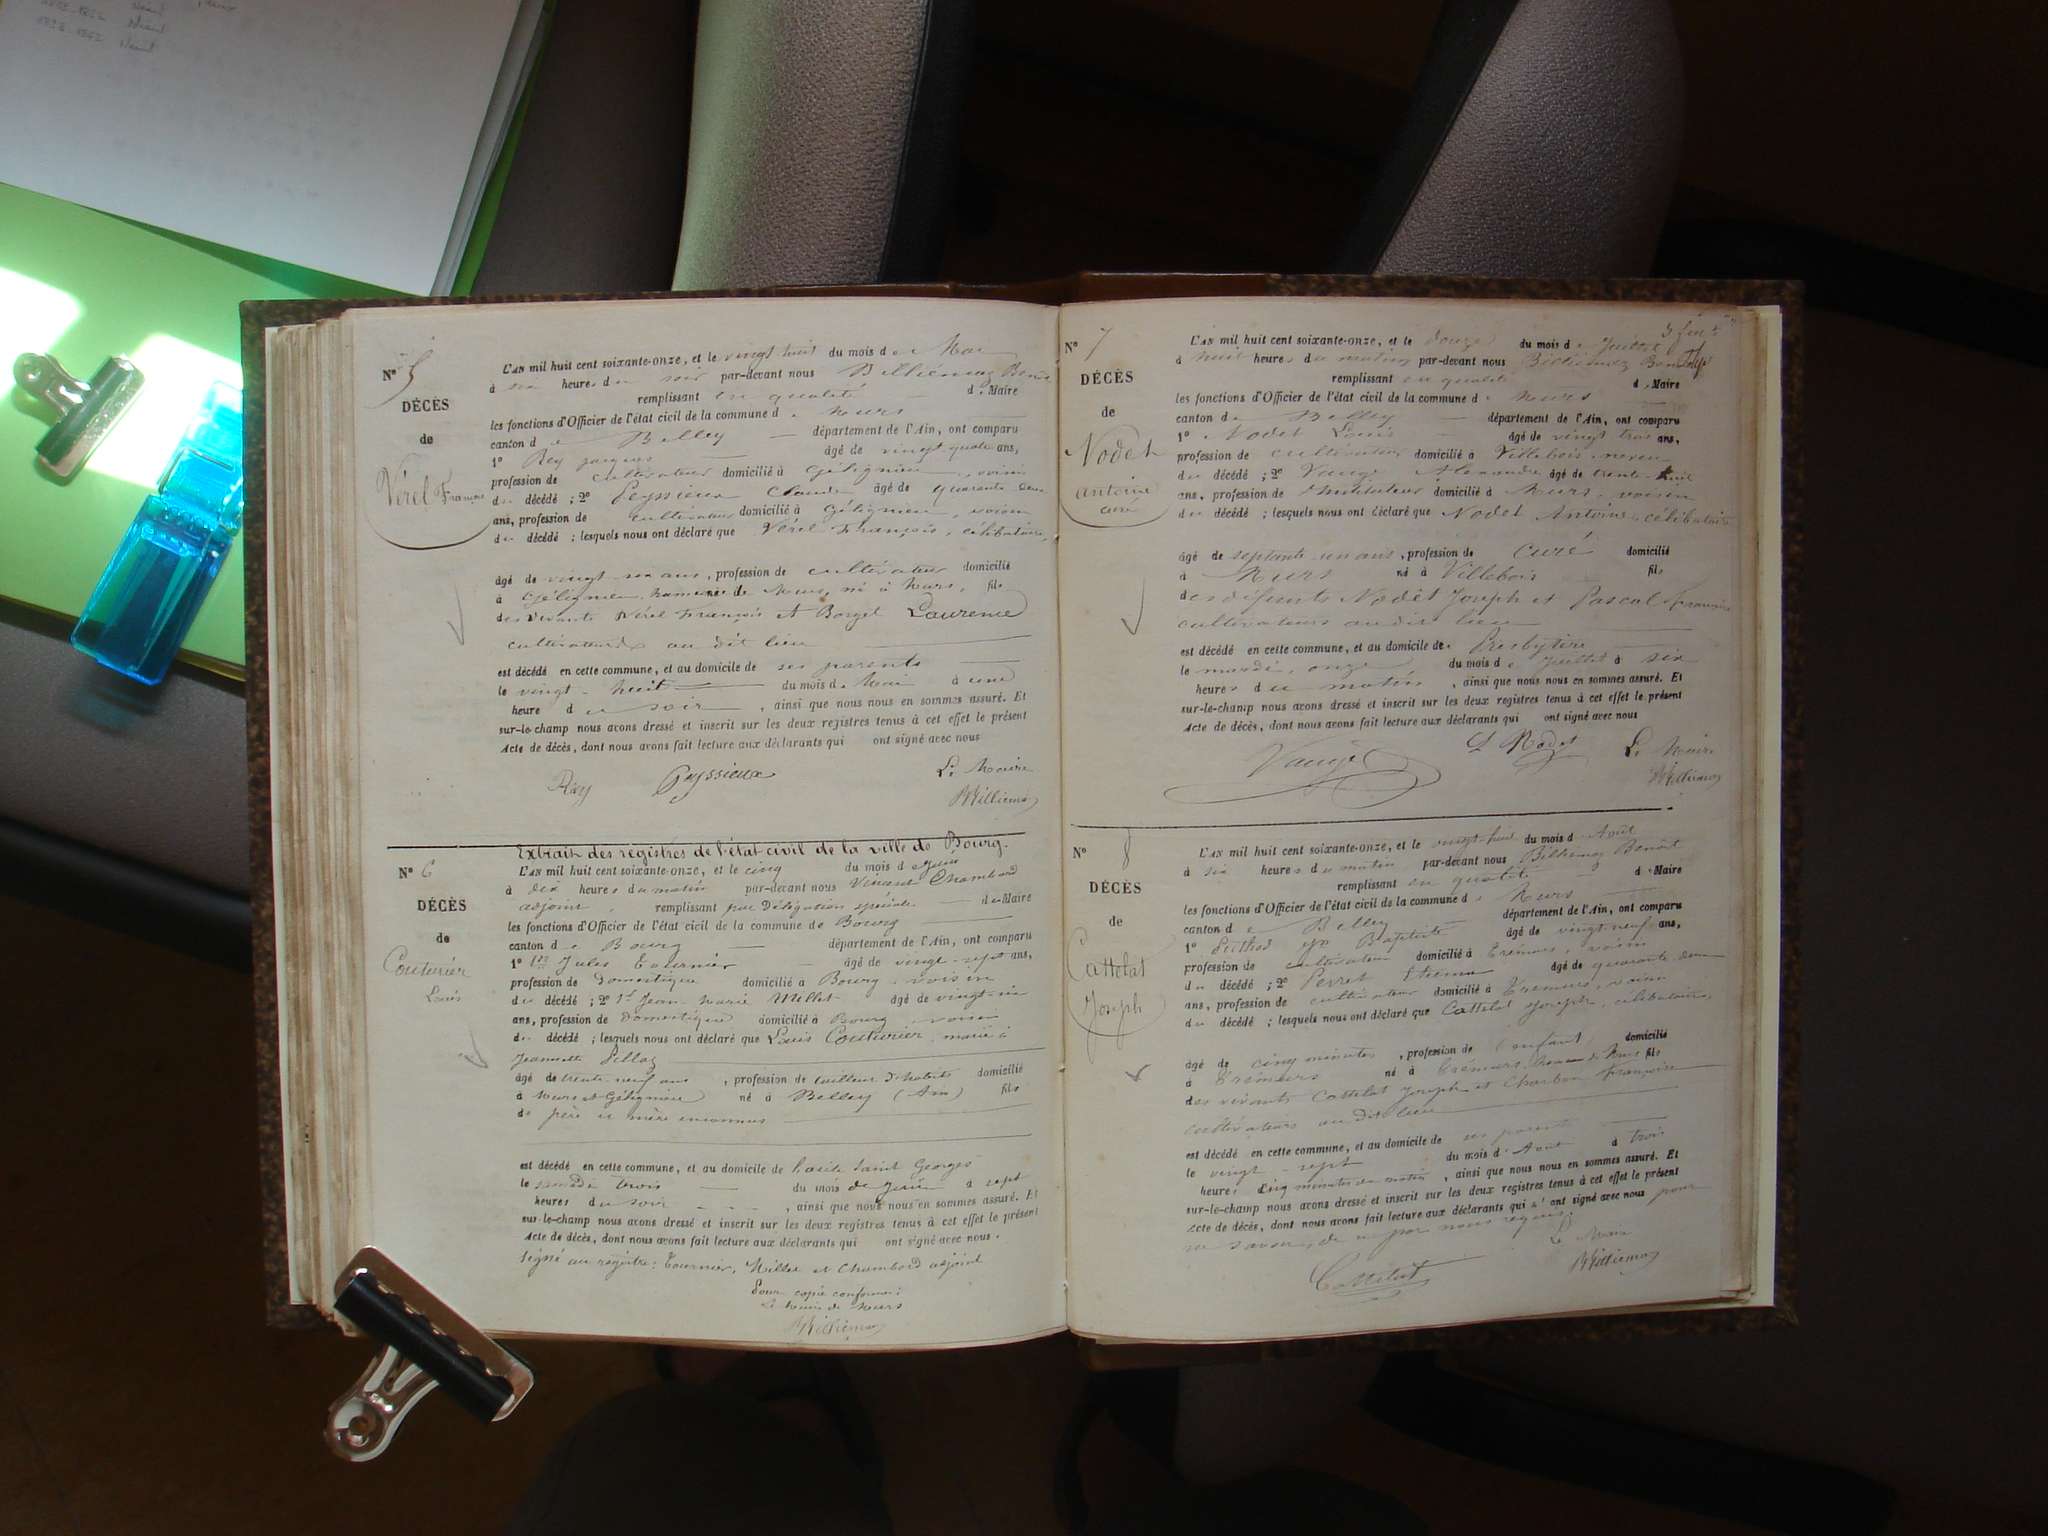 N° 5
DÉCÈS
de
Vérel François
L'AN mil huit cent soixante-onze, et le vingt huit du mois de Mai
à six heures du soir par-devant nous Billiémaz Benoit
remplissant en qualité de Maire
les fonctions d'Officier de l'état civil de la commune de Murs
canton de Belley département de l'Ain, ont comparu
1° Rey Jacques âgé de vingt quatre ans,
profession de cultivateur domicilié à Gélignieu, voisin
du décédé ; 2° Peyssieux Claude âgé de quarante deux
ans, profession de cultivateur domicilié à Gélignieu, voisin
du décédé ; lesquels nous ont déclaré que Vérel François, célibataire,
âgé de vingt-six ans, profession de cultivateur domicilié
à Gélignieu, hameau de Murs, né à Murs, fils
des vivants Vérel François et Borgel Laurence
cultivateurs au dit lieu
est décédé en cette commune, et au domicile de ses parents
le vingt-huit du mois de Mai à une
heure du soir, ainsi que nous nous en sommes assuré. Et
sur-le-champ nous avons dressé et inscrit sur les deux registres tenus à cet effet le présent
Acte de décès, dont nous avons fait lecture aux déclarants qui ont signé avec nous
Rey Peyssieux Le Maire
BBilliemaz
Extrait des registres de l'état civil de la ville de Bourg.
N° 6
DÉCÈS
de
Couturier
Louis
L'AN mil huit cent soixante-onze, et le cinq du mois de Juin
à dix heures du matin par-devant nous Vincent Chambord
adjoint, remplissant par Délégation spéciale du Maire
les fonctions d'Officier de l'état civil de la commune de Bourg
canton de Bourg département de l'Ain, ont comparu
1° Jules Tournier âgé de vingt-sept ans,
profession de Domestique domicilié à Bourg, voisin
du décédé ; 2° Jean-Marie Millet âgé de vingt-six
ans, profession de Domestique domicilié à Bourg, voisin
du décédé ; lesquels nous ont déclaré que Louis Couturier, marié à
Jeannette Pellaz
âgé de trente-neuf ans, profession de tailleur d'habits domicilié
à Murs et Gélignieu né à Belley (Ain) fils
de père et mère inconnus
est décédé en cette commune, et au domicile de l'asile Saint Georges
le trois du mois de Juin à sept
heures du soir, ainsi que nous nous en sommes assuré. Et
sur-le-champ nous avons dressé et inscrit sur les deux registres tenus à cet effet le présent
Acte de décès, dont nous avons fait lecture aux déclarants qui ont signé avec nous.
Signé au registre : Tournier, Millet et Chambord adjoint
Pour copie conforme :
Le Maire de Murs
BBilliemaz
N° 7
DÉCÈS
de
Nodet
Antoine
curé
L'AN mil huit cent soixante-onze, et le douze du mois de Juillet
à huit heures du matin par-devant nous Billiémaz Benoit
remplissant en qualité de Maire
les fonctions d'Officier de l'état civil de la commune de Murs
canton de Belley département de l'Ain, ont comparu
1° Nodet Louis âgé de vingt trois ans,
profession de cultivateur domicilié à Villebois, neveu
du décédé ; 2° Vaugé Alexandre âgé de trente-huit
ans, profession de Instituteur domicilié à Murs, voisin
du décédé ; lesquels nous ont déclaré que Nodet Antoine, célibataire
âgé de septante un ans, profession de curé domicilié
à Murs né à Villebois fils
des défunts Nodet Joseph et Pascal Françoise
cultivateurs au dit lieu
est décédé en cette commune, et au domicile de Presbytère
le mardi, onze, du mois de Juillet à six
heures du matin, ainsi que nous nous en sommes assuré. Et
sur-le-champ nous avons dressé et inscrit sur les deux registres tenus à cet effet le présent
Acte de décès, dont nous avons fait lecture aux déclarants qui ont signé avec nous
Vaugé L Nodet Le Maire
BBilliemaz
N° 8
DÉCÈS
de
Cattelat
Joseph
L'AN mil huit cent soixante-onze, et le vingt-huit du mois d'Août
à six heures du matin par-devant nous Billiémaz Benoit
remplissant en qualité de Maire
les fonctions d'Officier de l'état civil de la commune de Murs
canton de Belley département de l'Ain, ont comparu
1° Jn Baptiste âgé de vingt-neuf ans,
profession de cultivateur domicilié à Crémurs, voisin
du décédé ; 2° Peyret Etienne âgé de quarante deux
ans, profession de cultivateur domicilié à Crémurs, voisin
du décédé ; lesquels nous ont déclaré que Cattelat Joseph, célibataire,
âgé de cinq minutes, profession de (enfant) domicilié
à Crémurs né à Crémurs, hameau de Murs fils
des vivants Cattelat Joseph et Charbon Françoise
cultivateurs au dit lieu
est décédé en cette commune, et au domicile de ses parents
le vingt-sept du mois d'Août à trois
heures cinq minutes du matin, ainsi que nous nous en sommes assuré. Et
sur-le-champ nous avons dressé et inscrit sur les deux registres tenus à cet effet le présent
Acte de décès, dont nous avons fait lecture aux déclarants qui n'ont signé avec nous pour
ne savoir, de ce par nous requis.
Le Maire
Cattelat BBilliemaz